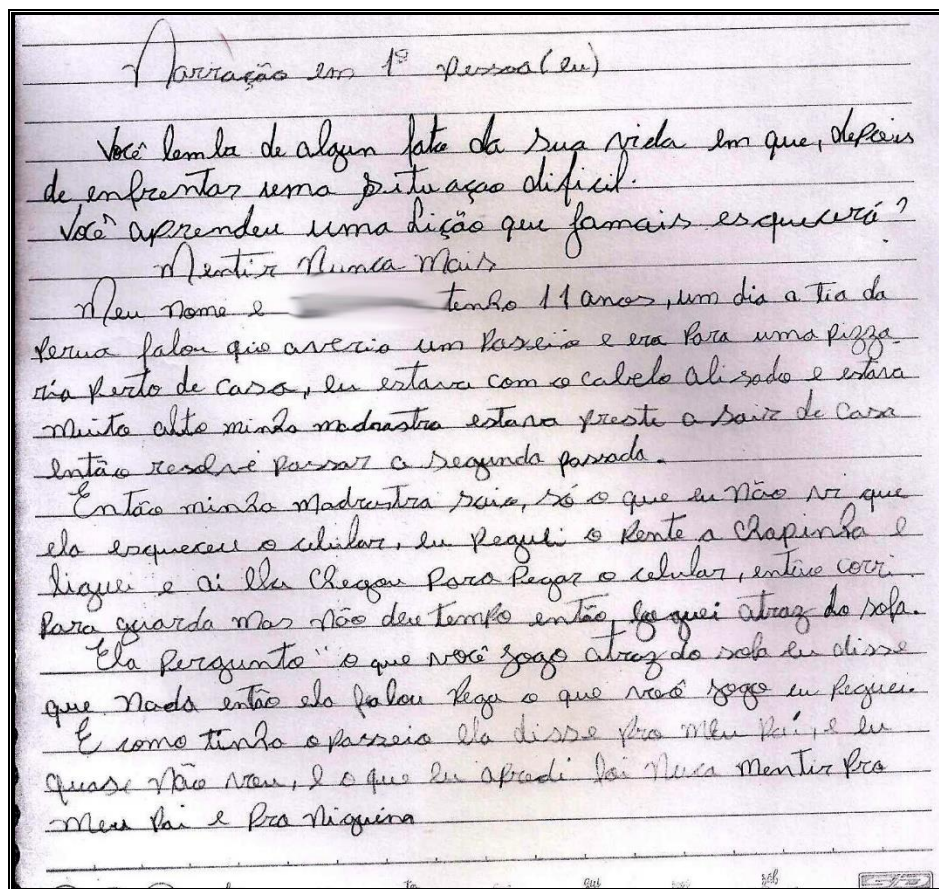 Narração em 1ª pessoa (eu)
Você lemba de algun fato da sua vida em que, depois
de enfrentar uma situaçao dificil.
Você aprendeu uma lição que jamais esquecerá?
Mentir Nunca Mais
Meu nome e tenho 11 anos, um dia a tia da
Perua falou que averia um Paseio e era Para uma pizza
ria Perto de casa, eu estava com o cabelo alisado e estava
muito alto minha madrastra estava preste a sair de Casa
então resolvé passar a segunda passada.
Então minha Madrastra saio, só o que eu não vi que
ela esqueceu o celular, eu Peguei o Pente a Chapinha e
liguei e ai ela Chegou Para Pegar o celular, então corri
Para guarda mas não deu tempo então joguei atraz do sofa.
Ela Pergunto "o que você jogo atraz do sofa eu disse
que nada então ela falou Pega o que você jogo eu Peguei.
E como tinha o passeio ela disse pro meu Pai, e eu
quase não vou, e o que eu apredi foi Nuca mentir Pro
meu Pai e Pra niguina